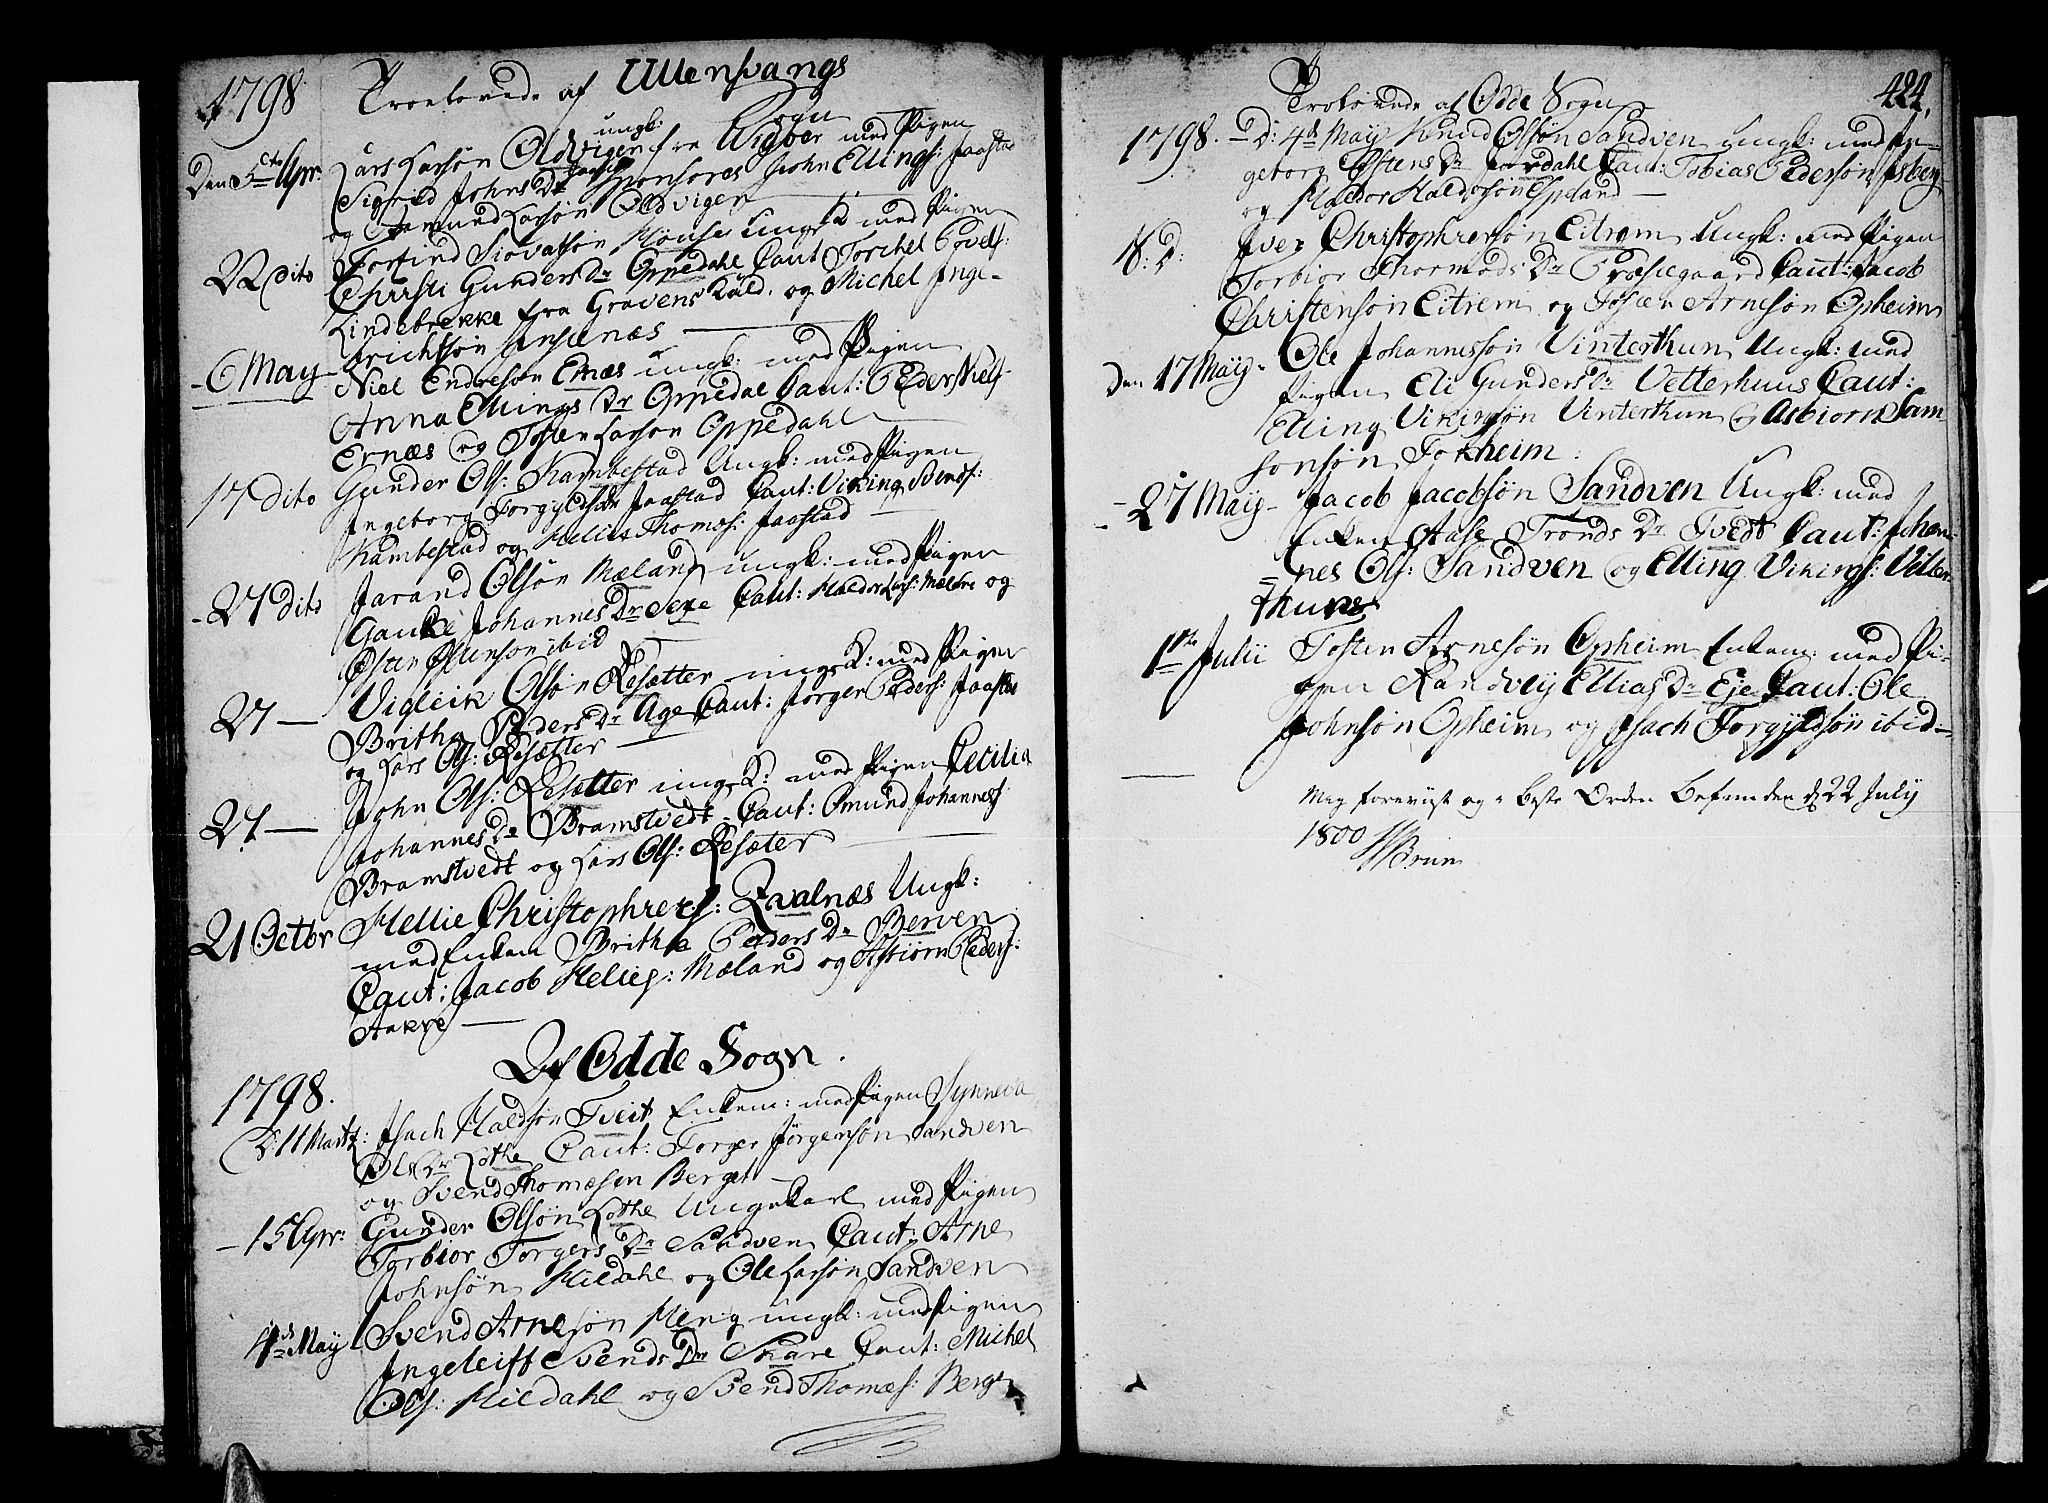 1798 Troelovede af Ullensvangs
Sogn
Den 5te Apr: Lars Larsøn Aldvigen ungk: fra Wigøer med Pigen
Sigrid Johns Dr Jaastad Sponsores John Ellings: Jaastad
og Aamund Larsøn Oldvigen
22 dito Torfind Siovatsøn Mønse ungk med Pigen
Christi Gunders Dr Oppedahl Caut Torchel Povels:
Lindebrekke fra Gravens Kald. og Michel Inge-
brichtsøn Ernsenæs
- 6 May - Niel Endresøn Ernæs ungk: med Pigen
Anna Ellings Dr Oppedal Caut: Peder Niels:
Ernæs og Tosten Larsøn Oppedahl
17 dito Gunder Ols: Kambestad Ungk: med Pigen
Ingeborg Torgylds Dr Jaastad Caut: Viking Bends:
Kambestad og Helies Thomes: Jaastad
- 27 dito Jarand Olsøn Mæland ungk: med Pigen
Gauke Johannes Dr Sexe Caut: Haldor Lars: Mæland og
Østen Østensøn ibid
27 — Vigleik Olsøn Resætter ungk: med Pigen
Britha Peders Dr Age Caut: Jørgen Peders: Jaastad
og Lars Ols: Resætter
27 — John Ols: Resætter ungk: med Pigen Cecilia
Johannes Dr Bramstvedt - Caut: Omund Johannes:
Bramstvedt og Lars Ols: Resæter
21 Octbr Hellie Christophers: Qvalnæs Ungk:
med Enken Britha Peders Dr Berven
Caut: Jacob Helies: Mæland og Asbiørn Peders:
Aakre
Af Odde Sogn.
1798.
D: 11 Martz: Isach Haldsøn Tveit Enkem: med Pigen Synneva
Ols Dr Lothe Caut: Torger Jørgensøn Sandven
og Svend Thomæsøn Berget
- 15 Apr: Gunder Olsøn Lothe Ungkarl med Pigen
Torbior Torgers Dr Sandven Caut: Arne
Johnsøn Hildahl og Ole Larsøn Sandven
4de May Svend Arnesøn Meng ungk: med Pigen
Ingeleiff Svends Dr Skare Caut: Michel
Ols: Hildahl og Svend Thomæs: Berge
424.
Troelovede af Odde Sogn
1798. - D: 4de May Knud Olsøn Sandven ungk: med In-
geborg Østens Dr Jordahl Caut: Tobias Pedersøn Isberg
og Haldor Haldorsøn Espeland
S: D: Iver Christophersøn Eitrem Ungk: med Pigen
Torbior Thormods: Dr Præstegaard Caut: Jacob
Christensøn Eitrem og Tosten Arnesøn Opheim
den 17 May - Ole Johannessøn Vinterthun Ungk: med
Pigen Eli Gunders Dr Vetterhuus Caut:
Elling Vikingsøn Vinterthun og Asbiorn Sam-
sonsøn Tokheim.
- 27 May - Jacob Jacobsøn Sandven Ungk: med
Enken Aase Tronds Dr Tvedt Caut: Johan-
nes Ols: Sandven og Elling Vikings: Vitter-
thuns
1te Julii Tosten Arnesøn Opheim Enkem: med Pi-
gen Randvey Ellias Dr Eje Caut: Ole
Johnsøn Opheim og Isach Torgyldsøn ibid -
Mig foreviist og i beste Orden befunden d 22 July
1800 Brun